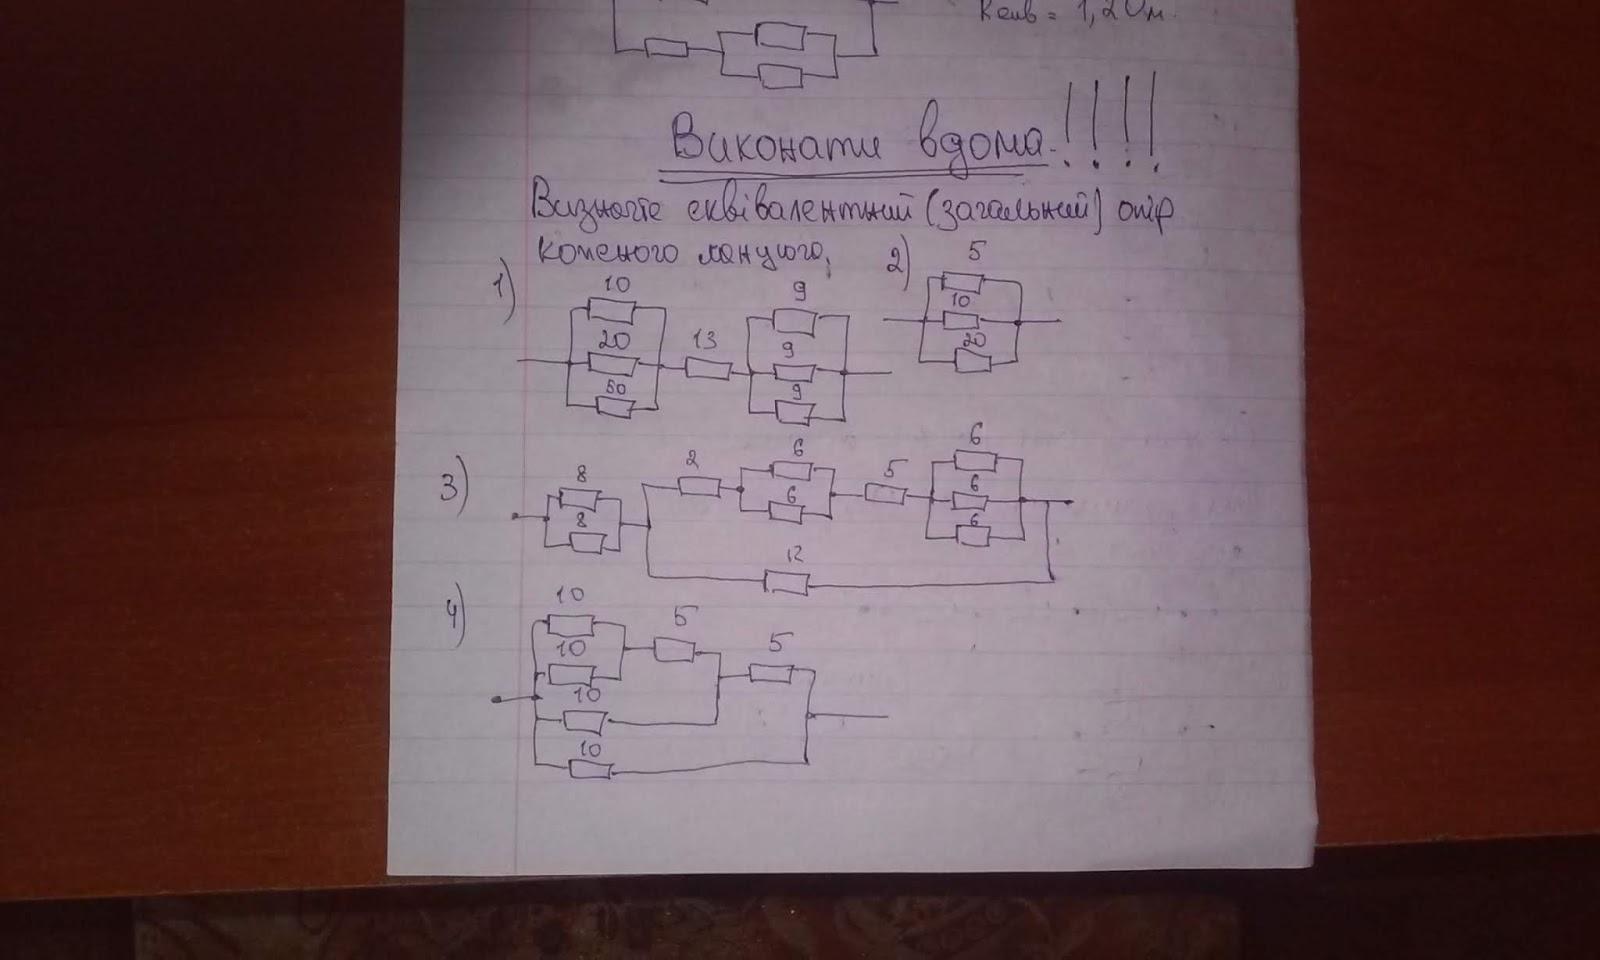 Rекв = 1,2 Ом.
Виконати вдома!!!!
Визначте еквівалентний (загальний) опір
кожного ланцюга.
1)
10
20
50
13
9
9
9
2)
5
10
20
3)
8
8
2
6
6
5
6
6
6
12
4)
10
10
10
10
5
5